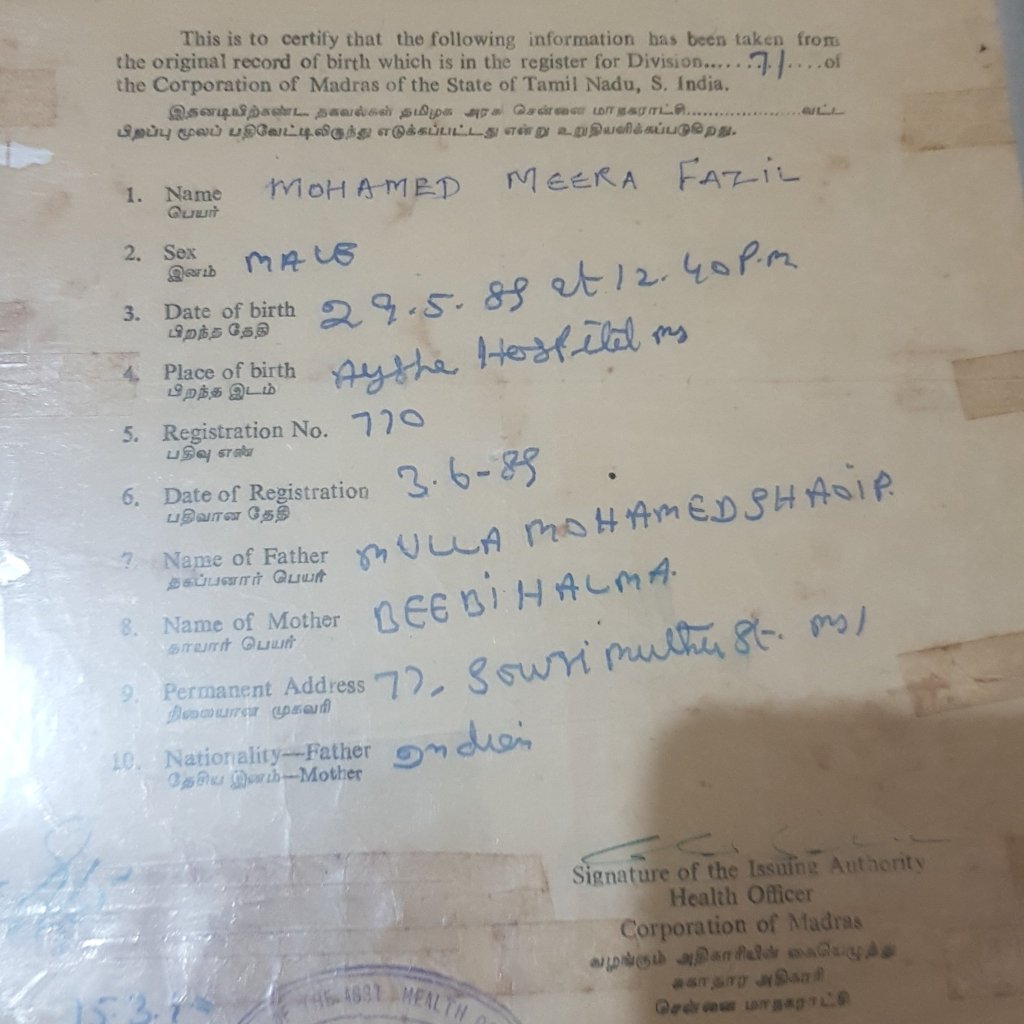 This is to certify that the following information has been taken from
the original record of birth which is in the register for Division......71....of
the Corporation of Madras of the State of Tamil Nadu, S. India.
இதனடியிற்கண்ட தகவல்கள் தமிழக அரசு சென்னை மாநகராட்சி....................வட்ட
பிறப்பு மூலப் பதிவேட்டிலிருந்து எடுக்கப்பட்டது என்று உறுதியளிக்கப்படுகிறது.
1. Name MOHAMED MEERA FAZIL
பெயர்
2. Sex MALE
இனம்
3. Date of birth 29.5.89 at 12.40 P.m
பிறந்த தேதி
4. Place of birth Aysha Hospital ms
பிறந்த இடம்
5. Registration No. 770
பதிவு எண்
6. Date of Registration 3.6-89
பதிவான தேதி
7. Name of Father MULLA MOHAMED
தகப்பனார் பெயர்
8. Name of Mother BEEBI HALMA.
தாயார் பெயர்
9. Permanent Address 77, Sowri muthu St. ms/
நிலையான முகவரி
10. Nationality—Father Indian
தேசிய இனம்—Mother
Signature of the Issuing Authority
Health Officer
Corporation of Madras
வழங்கும் அதிகாரியின் கையெழுத்து
சுகாதார அதிகாரி
சென்னை மாநகராட்சி
THE ASST HEALTH
15.3.